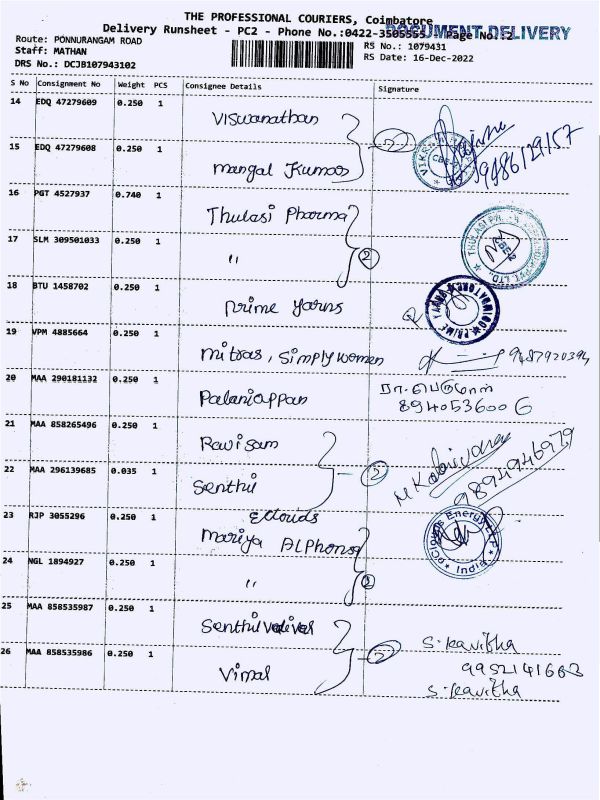 THE PROFESSIONAL COURIERS, Coimbatore
Delivery Runsheet - PC2 - Phone No.:0422-3505555 Page No.:2
DOCUMENT DELIVERY
Route: PONNURANGAM ROAD
RS No.: 1079431
Staff: MATHAN
RS Date: 16-Dec-2022
DRS No.: DCJB107943102
S No Consignment No Weight PCS Consignee Details Signature
14 EDQ 47279609 0.250 1 Viswanathan
15 EDQ 47279608 0.250 1 Mangal Kumar
16 PGT 4527937 0.740 1 Thulasi Pharma
17 SLM 309501033 0.250 1 " 2
18 BTU 1458702 0.250 1 Prime Yarns
19 VPM 4885664 0.250 1 Mitras, Simply women
20 MAA 290181132 0.250 1 Palaniappan
ரா.பெருமாள்
8940536006
21 MAA 858265496 0.250 1 Ravisam
22 MAA 296139685 0.035 1 Senthil 2
9894946979
23 RJP 3055296 0.250 1 Mariya Alphonsa
24 NGL 1894927 0.250 1 "
25 MAA 858535987 0.250 1 Senthilvadivel
S. Kavitha
26 MAA 858535986 0.250 1 Vimal 2
S. Kavitha